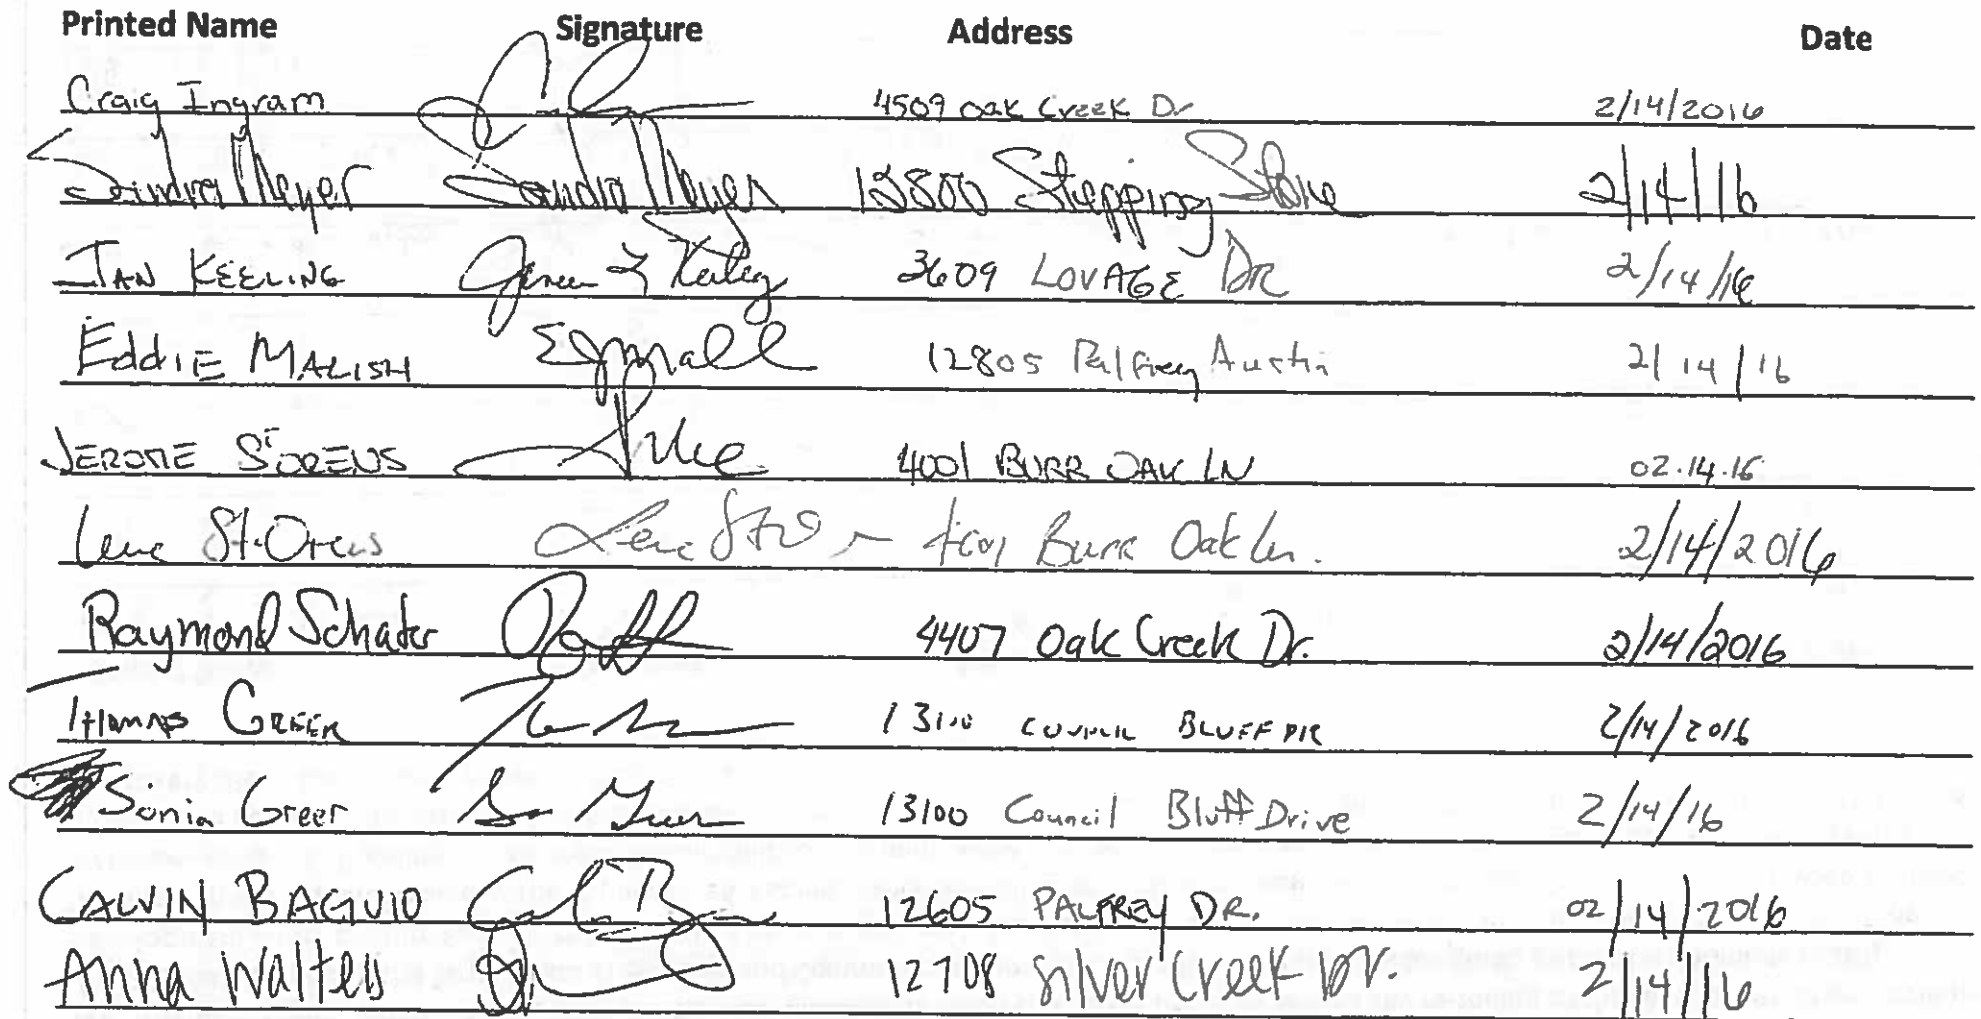 Printed Name Signature Address Date
Craig Ingram 4509 Oak Creek Dr 2/14/2016
Sandra Meyer Sandra Meyer 12800 Stepping Stone 2/14/16
JAN KEELING 3609 LOVAGE DR 2/14/16
EddIE MALISH 12805 Palfrey Austin 2/14/16
JEROME ST ORENS 4001 BURR OAK LN 02.14.16
St. Orens Burr Oak Ln. 2/14/2016
Raymond Schafer 4407 Oak Creek Dr. 2/14/2016
THOMAS GREER 13100 COUNCIL BLUFF DR 2/14/2016
Sonia Greer 13100 Council Bluff Drive 2/14/16
CALVIN BAGUIO 12605 PALFREY DR. 02/14/2016
Anna Walters 12708 Silver Creek Dr. 2/14/16